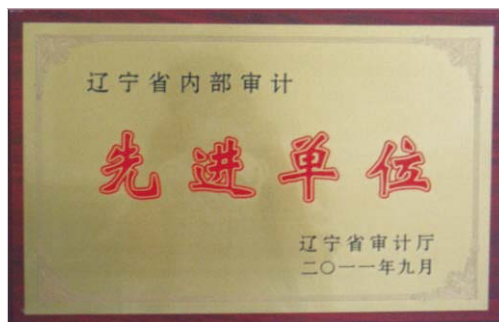 辽宁省内部审计
先进单位
辽宁省审计厅
二〇一一年九月